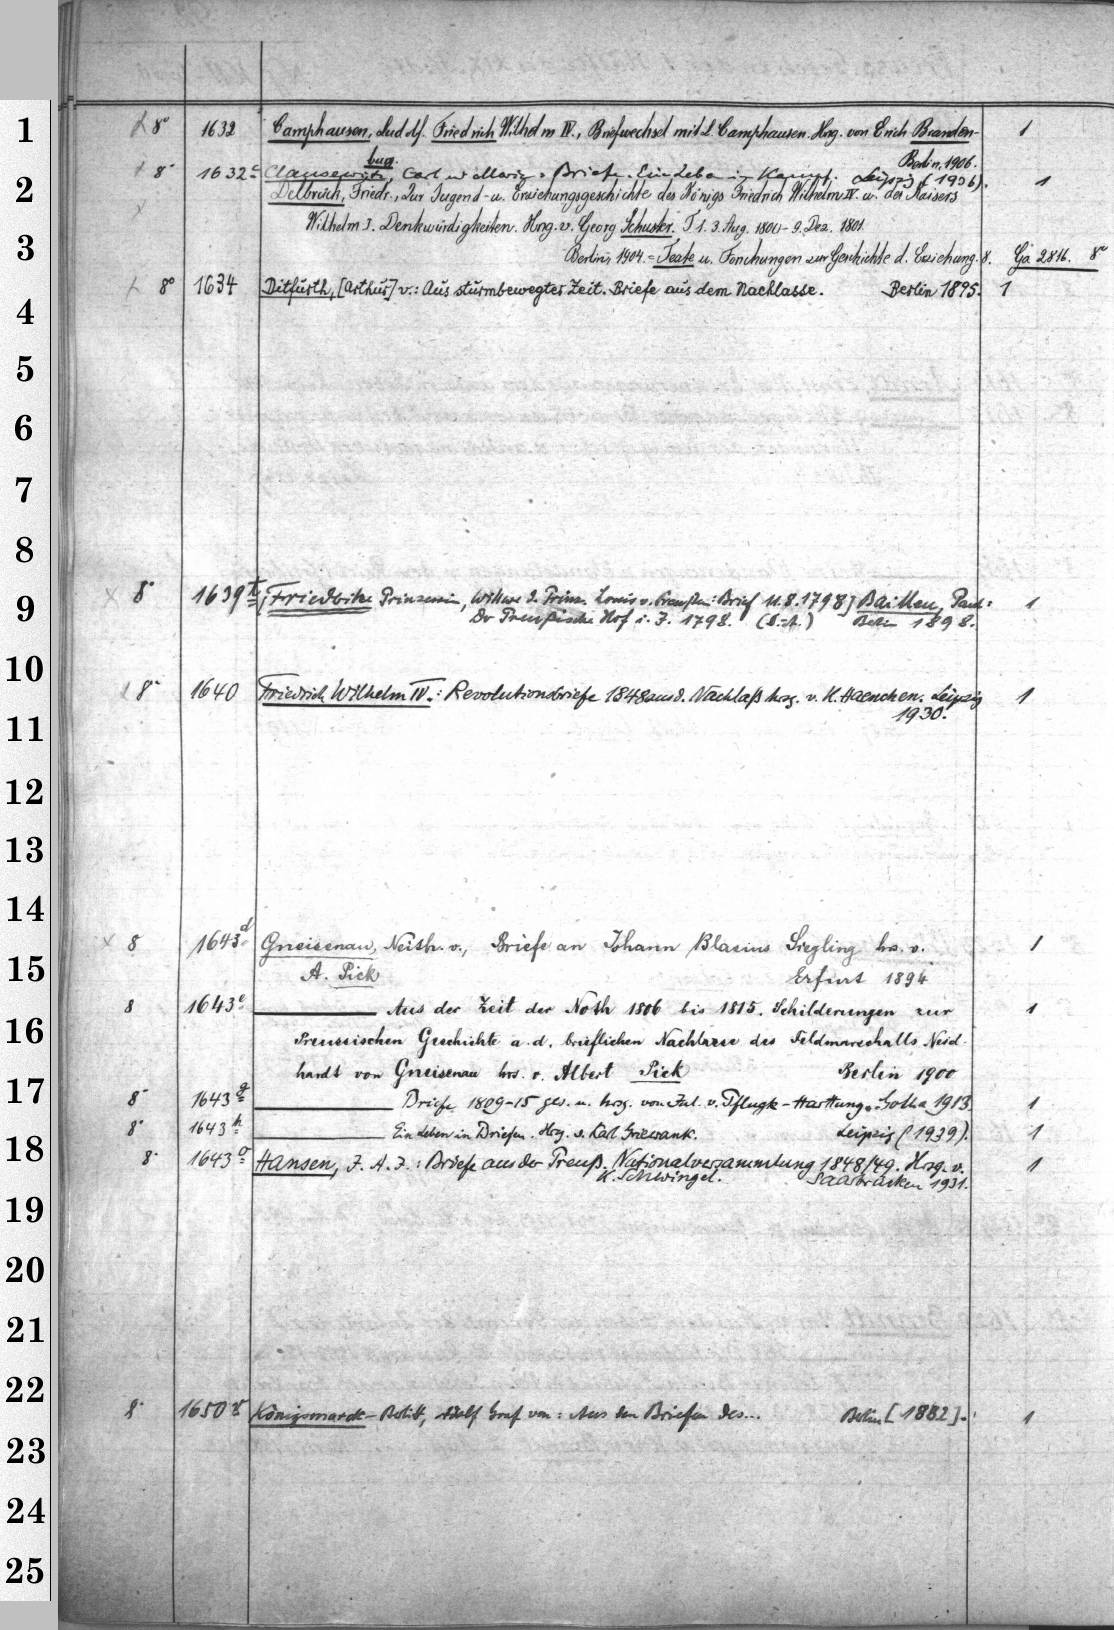 1
8° 1632 Camphausen, Ludolf. Friedrich Wilhelm IV., Briefwechsel mit L. Camphausen. Hrsg. von Erich Branden- 1
burg. Berlin, 1906.
2
8° 1632c Clausewitz, Carl u. Marie: Briefe. Ein Leben im Kampf. Leipzig (1936). 1
Delbrück, Friedr., Zur Jugend- u. Erziehungsgeschichte des Königs Friedrich Wilhelm IV. u. des Kaisers
Wilhelm I. Denkwürdigkeiten. Hrsg. v. Georg Schuster. T 1. 3. Aug. 1800 - 9. Dez. 1801.
3
Berlin, 1904. = Texte u. Forschungen zur Geschichte d. Erziehung. 8. Gä 2816. 8°
8° 1634 Ditfurth, [Arthur] v.: Aus sturmbewegter Zeit. Briefe aus dem Nachlasse. Berlin 1895. 1
4
5
6
7
8
9
8° 1639 [Friederike Prinzessin, Witwe d. Prinz. Louis v. Preußen: Brief 11.8.1798] Bailleu, Paul:
1
Der Preußische Hof i. J. 1798. (S.-A.) Berlin 1898.
10
8° 1640 Friedrich Wilhelm IV.: Revolutionsbriefe 1848 aus d. Nachlaß hrsg. v. K. Haenchen. Leipzig 1
1930.
11
12
13
14
8 1643d Gneisenau, Neith. v., Briefe an Johann Blasius Siegling hrs. v. 1
15
A. Pick Erfurt 1894
8 1643e ——— Aus der Zeit der Noth 1806 bis 1815. Schilderungen zur 1
16
Preussischen Geschichte a. d. brieflichen Nachlasse des Feldmarschalls Neid-
hardt von Gneisenau hrs. v. Albert Pick Berlin 1900
17
8° 1643g ——— Briefe 1809-15 ges. u. hrsg. von Jul. v. Pflugk-Harttung. Gotha 1913. 1
8° 1643h ——— Ein Leben in Briefen. Hrsg. v. Karl Griewank. Leipzig (1939). 1
18
8° 1643 Hansen, J. A. J.: Briefe aus der Preuß. Nationalversammlung 1848/49. Hrsg. v. 1
K. Schwingel. Saarbrücken 1931.
19
20
21
22
8° 1650 Königsmarck-Berlitt, Adolf Graf von: Aus den Briefen des... Berlin [1882]. 1
23
24
25